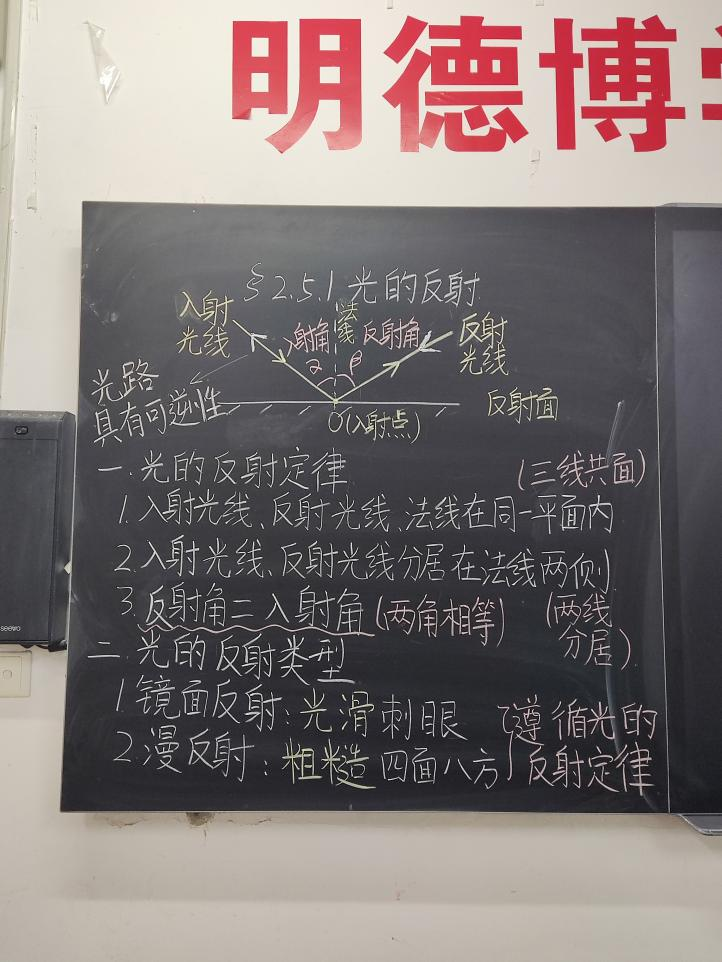 明德博学
§2.5.1 光的反射
入射光线
法线
入射角
反射角
反射光线
α
β
光路
具有可逆性
反射面
O(入射点)
一.光的反射定律
(三线共面)
1.入射光线、反射光线、法线在同一平面内
2.入射光线、反射光线分居在法线两侧
3.反射角=入射角(两角相等)
(两线分居)
二.光的反射类型
1.镜面反射:光滑 刺眼
2.漫反射:粗糙 四面八方
遵循光的
反射定律
seewo